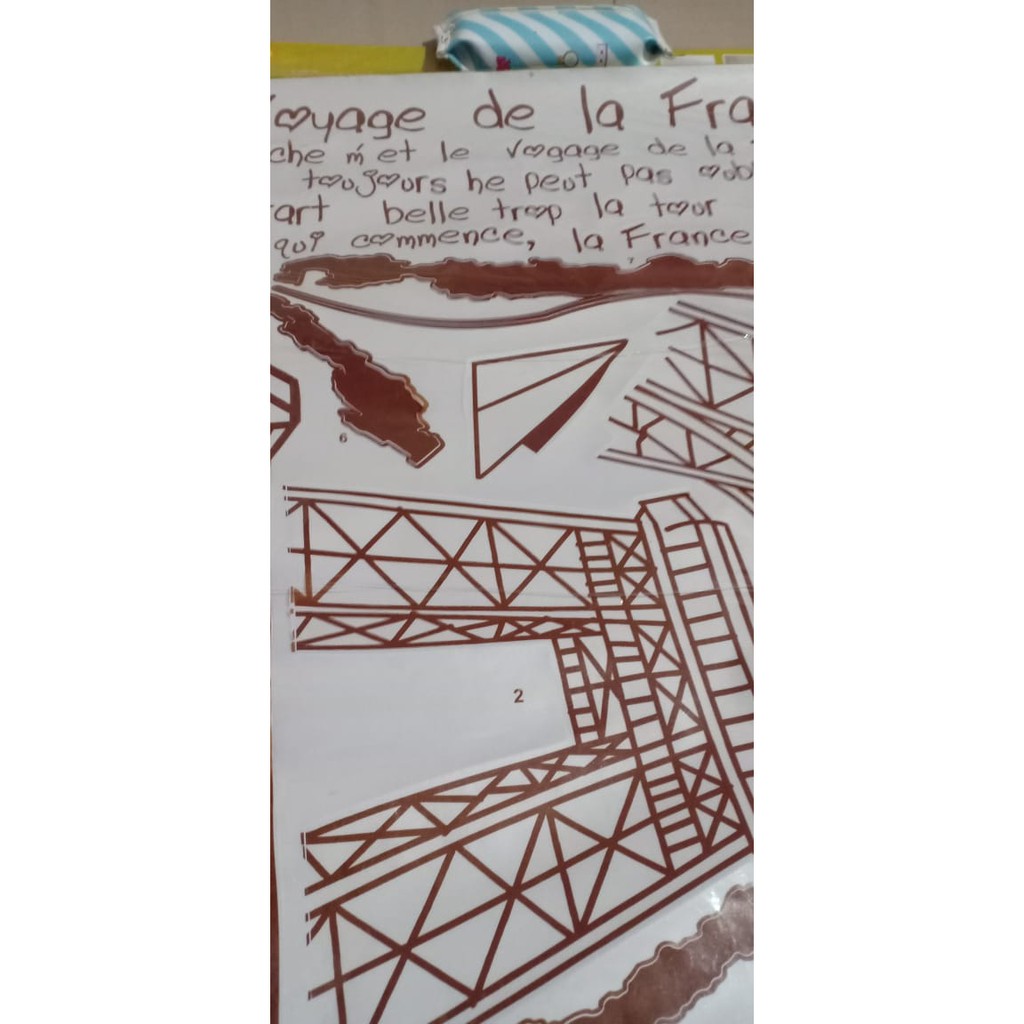 Voyage de la Fra
che m'et le vogage de la
toujours he peut pas oub
art belle trop la tour
qui commence, la France
7
6
2